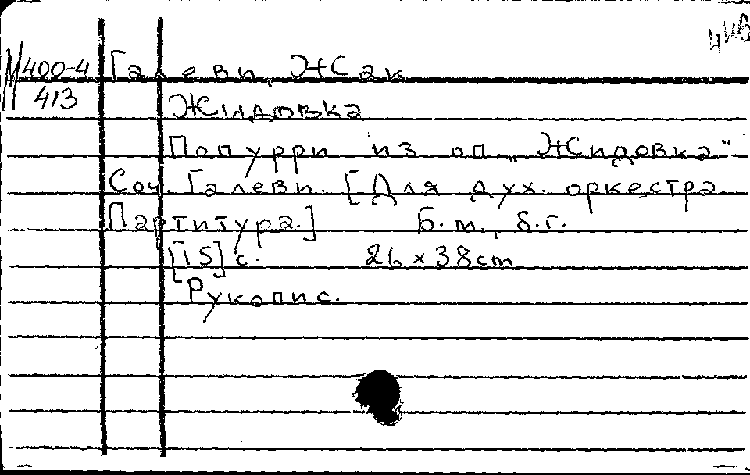 М400-4 Галеви, Жак
413 Жидовка
Попурри из оп. „Жидовка"
Соч. Галеви. [Для дух. оркестра.
Партитура.] Б. м., б. г.
[15] с. 26 × 38 cm
Рукопис.